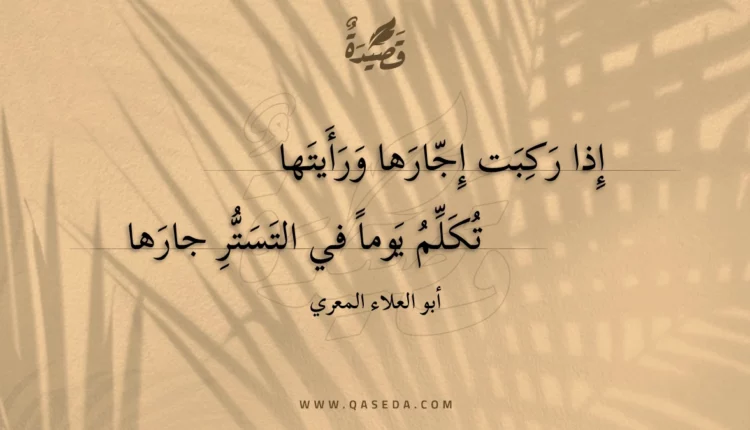 قَصِيدَةٌ
إِذا رَكِبَت إِجّارَها وَرَأَيتَها
تُكَلِّمُ يَوماً في التَسَتُّرِ جارَها
أبو العلاء المعري
WWW.QASEDA.COM